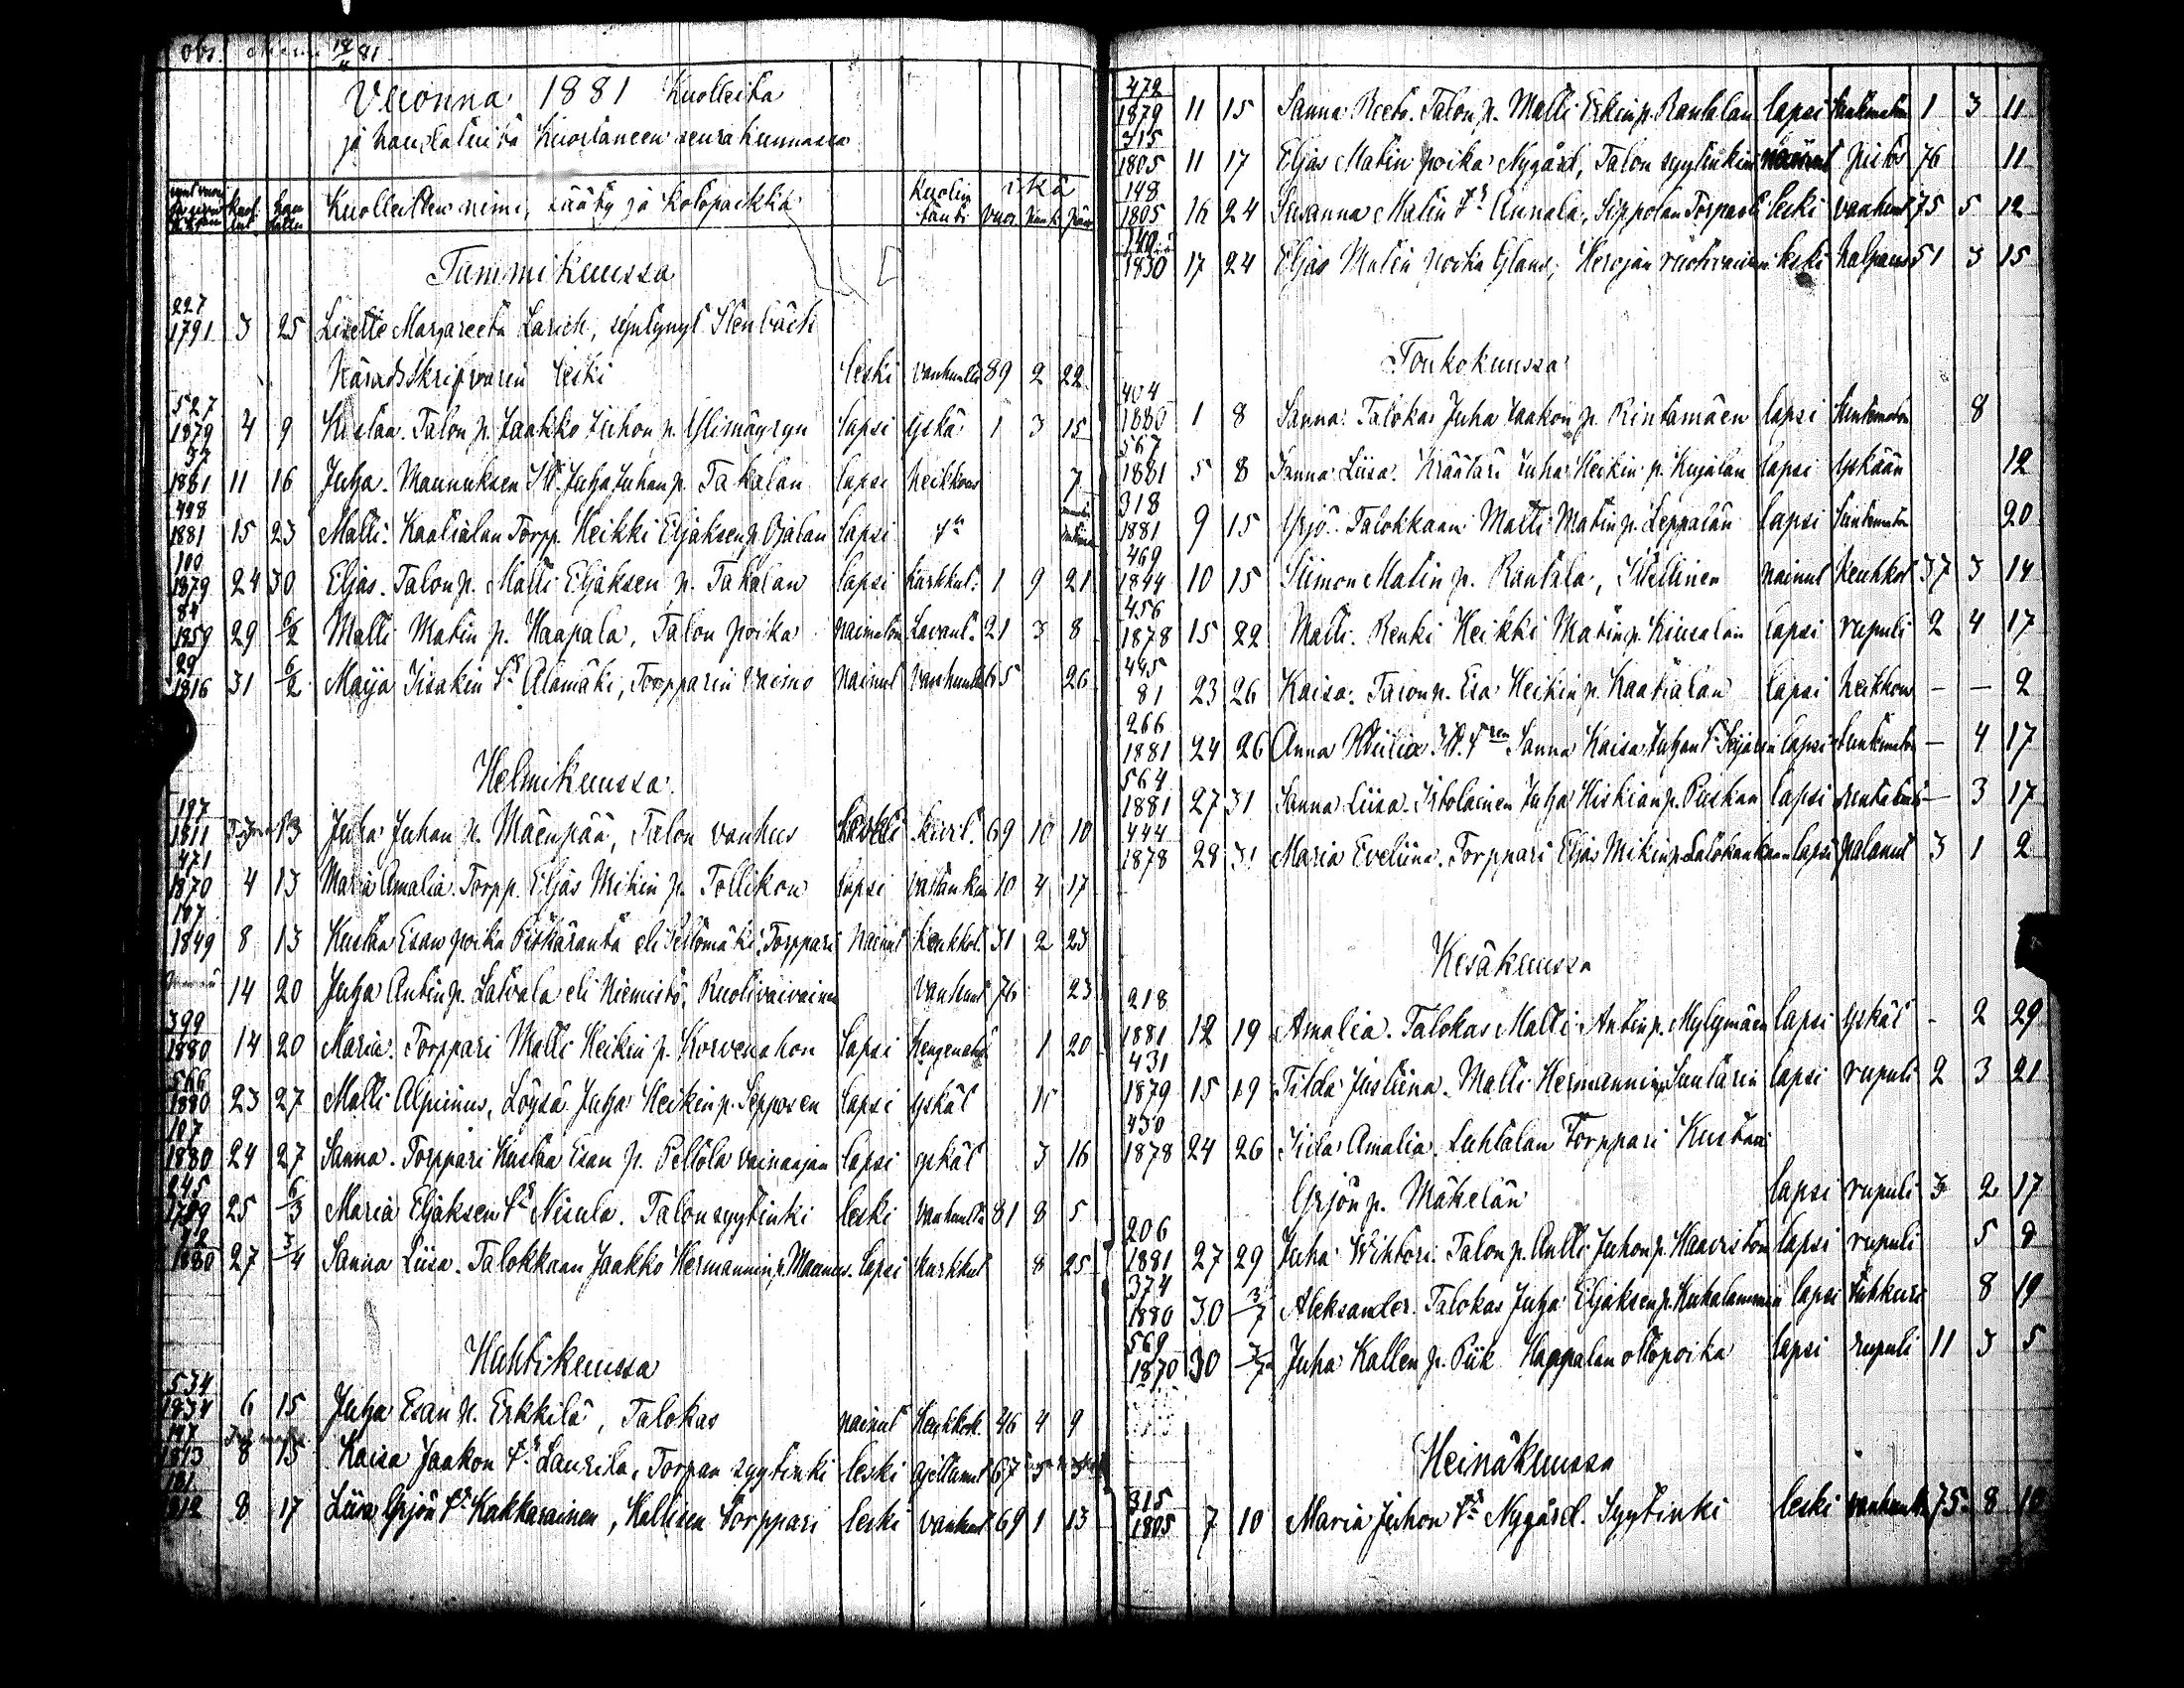 obs. 18/4 81
Vuonna 1881 Kuolleita
ja haudatuita Kuortaneen seurakunnassa
Kuolleitten nimi, sääty ja kotopaikka Kuolin tauti ikä
vuos. kuuk. päiv.
Tammikuussa
227
1791 3 25 Lisette Margareeta Larich, syntynyt Stenbäck
Häradsskrifvarin leski leski vanhuutta 89 2 22
527
1879 4 9 Kustaa. Talon p. Jaakko Juhon p. Ylimäyryn lapsi yskä 1 3 15
37
1881 11 16 Juha. Maunuksen Juha Juhan p. Takalan lapsi heikkous 7
498
1881 15 23 Matti. Kaatialan Torpp. Heikki Eljaksen p. Ojalan lapsi
100
1879 24 30 Eljas. Talon p. Matti Eljaksen p. Takalan lapsi kurkkut. 1 9 21
84
1859 29 6/2 Matti Matin p. Haapala, Talon poika naimaton Lavant. 21 3 8
29
1816 31 6/2 Maija Iisakin tr Alamäki, Torpparin vaimo nainut vanhuutta 65 26
Helmikuussa
197
1811 13 Juha Juhan p. Mäenpää, Talon vanhus Leski 69 10 10
471
1870 4 13 Maria Amalia. Torpp. Eljas Mikin p. Tollikon lapsi 10 4 17
107
1849 8 13 Kustaa Esan poika Pitkäranta eli Torppari nainut keuhkot. 31 2 23
14 20 Juha Antin p. Latvala eli Niemistö, Ruotivaivainen vanhuut 76 23
399
1880 14 20 Maria. Torppari Matti Heikin p. Korvenahon lapsi 1 20
566
1880 23 27 Matti Alpiinus, Löysä Juha Heikin p. Sepposen lapsi yskät 11
107
1880 24 27 Sanna. Torppari Kustaa Esan p. Peltola vainaajan lapsi yskät 3 16
245
1799 25 6/3 Maria Eljaksen tr Nisula. Talon syytinki leski vanhuutta 81 8 5
1880 27 3/4 Sanna Liisa. Talokkaan Jaakko Hermannin p. Maunus. lapsi kurkkut 8 25
Huhtikuussa
534
1834 6 15 Juha Esan p. Erkkilä, Talokas nainut keuhkok. 46 4 9
147
1813 8 15 Kaisa Jaakon tr Laurila, Torpan syytinki leski ajettumat 67 3
181
1812 8 17 Liisa Yrjön tr Kakkarainen, Kallisen Torppari leski vanhuut 69 1 13
472
1879 11 15 Sanna Reeta. Talon p. Matti Erkin p. Rantalan lapsi tuntematon 1 3 11
315
1805 11 17 Eljas Matin poika Nygård, Talon syytinkin nainut pistos 76 11
148
1805 16 24 Susanna Matin tr Annala, Sippolan Torpasta leski vanhuut 75 5 12
140
1830 17 24 Eljas Matin poika Glans, Herojan ruotivainen leski halpaus 51 3 15
Toukokuussa
404
1880 1 8 Sanna. Talokas Juha Jaakon p. Rintamäen lapsi tuntematon 8
567
1881 5 8 Sanna Liisa. Kräätäri Juha Heikin p. Kujalan lapsi yskään 12
318
1881 9 15 Yrjö. Talokkaan Matti Matin p. Leppälän lapsi tuntematon 20
469
1844 10 15 Siimon Matin p. Rantala, Itsellinen nainut keuhkot 37 3 14
456
1878 15 22 Matti. Renki Heikki Matin p. Kiusalan lapsi rupuli 2 4 17
445
81 23 26 Kaisa. Talon p. Esa Heikin p. Kaatialan lapsi heikkous – – 2
266
1881 24 26 Anna Sanna Kaisa Juhan tr lapsi tuntematon – 4 17
564
1881 27 31 Sanna Liisa. Itsellinen Juha Hiskian p. Puskan lapsi – 3 17
444
1878 28 31 Maria Eveliina. Torppari Eljas Mikin p. lapsi palanut 3 1 2
Kesäkuussa
218
1881 12 19 Amalia. Talokas Matti Antin p. Myllymäen lapsi yskät - 2 29
431
1879 15 19 Tilda Justiina. Matti Hermannin p. Santarin lapsi rupuli 2 3 21
430
1878 24 26 Iida Amalia. Luhtalan Torppari Kustaa
Yrjön p. Mäkelän lapsi rupuli 3 2 17
206
1881 27 29 Juha Wihtori. Talon p. Antti Juhon p. Haaviston lapsi rupuli 5 8
374
1880 30 3/7 Aleksander. Talokas Juha Eljaksen p. Kuhalammin lapsi tuhkuri 8 19
569
1870 30 3/7 Juha Kallen p. Piik Haapalan ottopoika lapsi rupuli 11 3 5
Heinäkuussa
315
1805 7 10 Maria Juhon tr Nygård. Syytinki leski vanhuutta 75 8 10